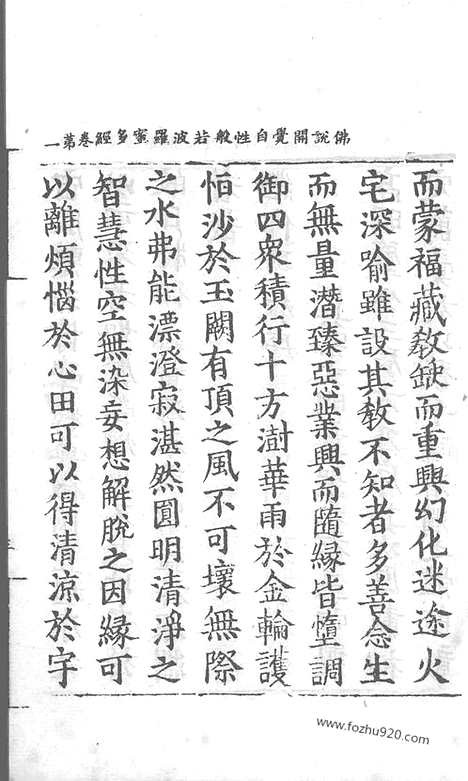 佛說開覺自性般若波羅蜜多經卷第一
而蒙福藏教缺而重興幻化迷途火
宅深喻雖設其教不知者多善念生
而無量潛臻惡業興而隨緣皆墮調
御四衆積行十方澍華雨於金輪護
恒沙於玉闕有頂之風不可壞無際
之水弗能漂澄寂湛然圓明清淨之
智慧性空無染妄想解脫之因緣可
以離煩惱於心田可以得清涼於宇
www.fozhu920.com